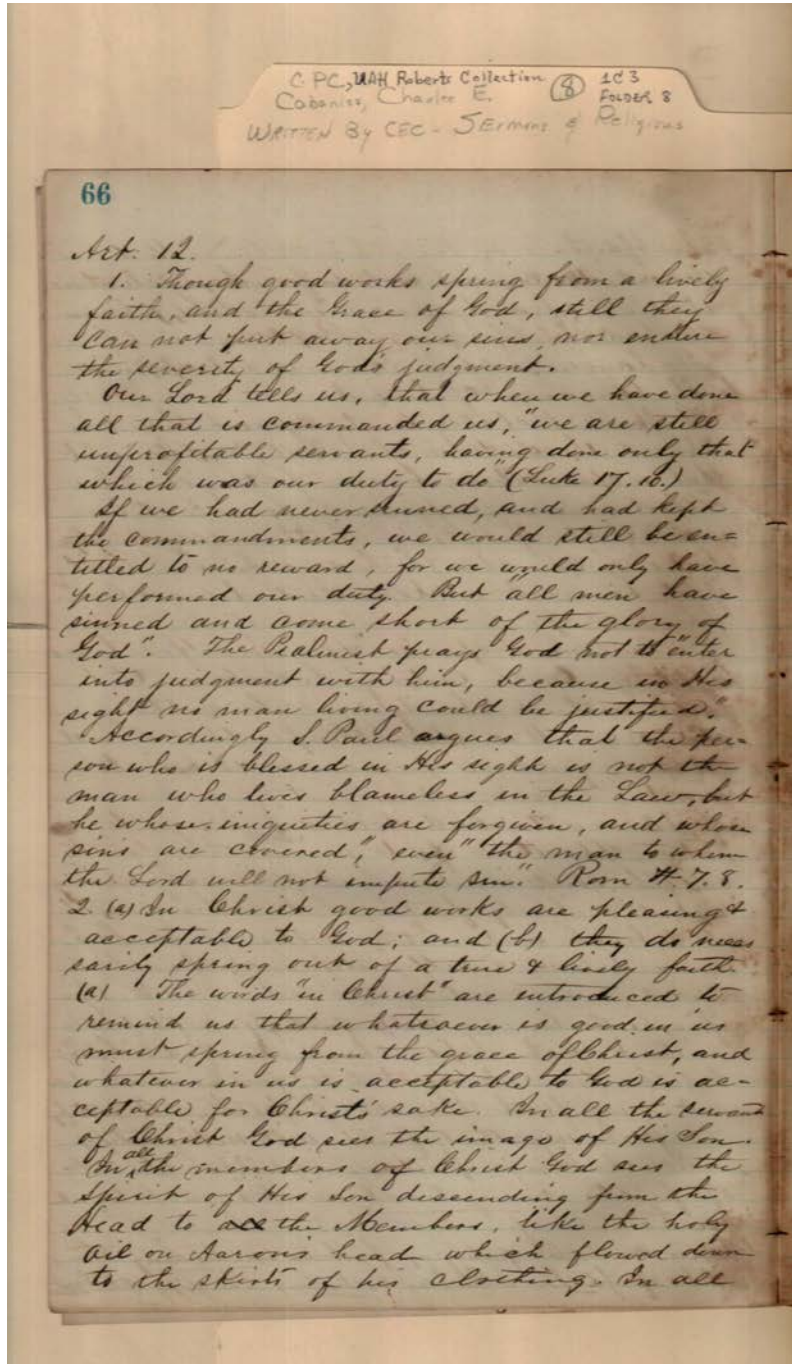 C.P.C., UAH Roberts Collection (8) 1C3
Cabaniss, Charles E. FOLDER 8
WRITTEN By CEC - SErmons & Religious
66
Art. 12.
1. Though good works spring from a lively
faith, and the Grace of God, still they
can not put away our sins, nor endure
the severity of God's judgment.
Our Lord tells us, that when we have done
all that is commanded us, "we are still
unprofitable servants, having done only that
which was our duty to do" (Luke 17.10.)
If we had never sinned, and had kept
the commandments, we would still be en=
titled to no reward, for we would only have
performed our duty. But "all men have
sinned and come short of the glory of
God". The Psalmist prays God not to "enter
into judgment with him, because in His
sight no man living could be justified."
Accordingly S. Paul argues that the per=
son who is blessed in His sight is not the
man who lives blameless in the Law, but
he whose iniquities are forgiven, and whose
sins are covered", even "the man to whom
the Lord will not impute sin." Rom 4.7.8.
2. (a) In Christ good works are pleasing &
acceptable to God; and (b) they do neces
sarily spring out of a true & lively faith.
(a) The words "in Christ" are introduced to
remind us that whatsoever is good in us
must spring from the grace of Christ, and
whatever in us is acceptable to God is ac=
ceptable for Christ's sake. In all the servants
of Christ God sees the image of His Son.
In all the members of Christ God sees the
Spirit of His Son descending from the
Head to all the Members, like the holy
oil on Aaron's head which flowed down
to the skirts of his clothing. In all